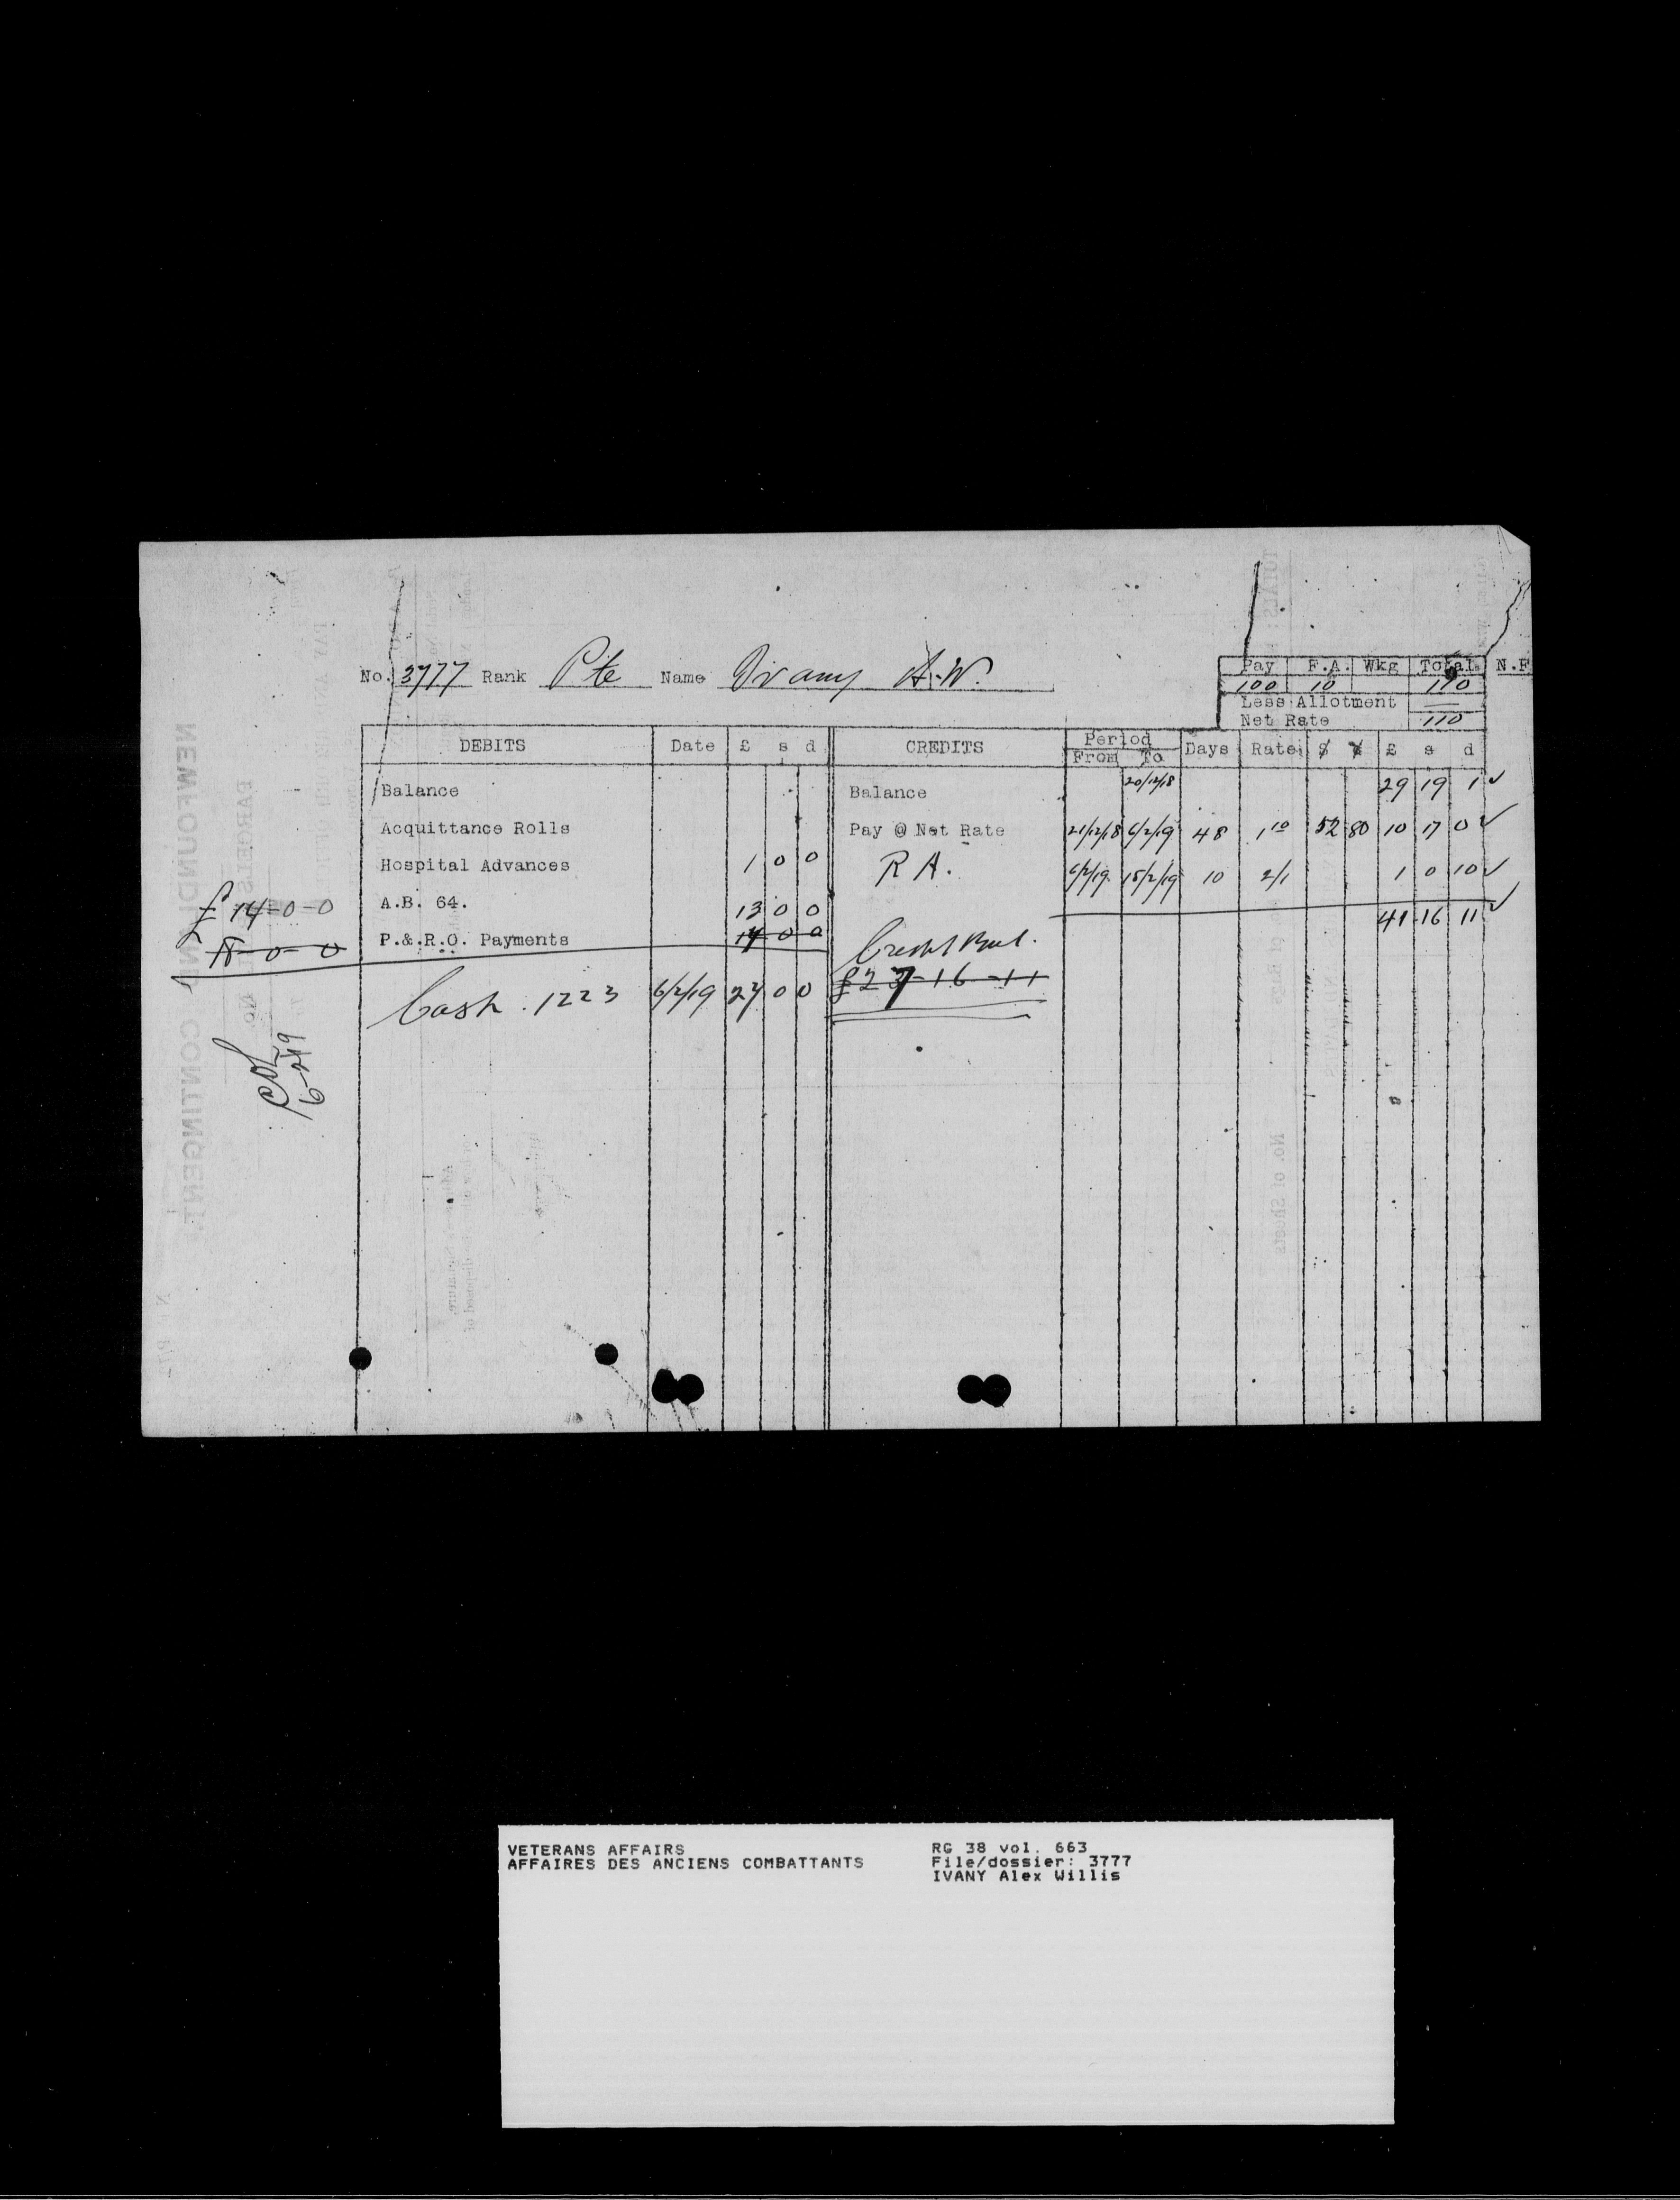 No. 3777 Rank Pte Name Ivany A.W.
Pay F.A. Wkg Total N.F
100 10 110
Less Allotment —
Net Rate 110
DEBITS Date £ s d CREDITS Period From To Days Rate $ ¢ £ s d
Balance Balance 20/12/18 29 19 1 ✓
Acquittance Rolls Pay @ Net Rate 21/12/18 6/2/19 48 1 10 52 80 10 17 0 ✓
Hospital Advances 1 0 0 R A. 6/2/19 15/2/19 10 2/1 1 0 10 ✓
£ 14-0-0 A.B. 64. 13 0 0 41 16 11 ✓
P.& R.O. Payments 14 0 0 Credit Bal.
Cash 1223 6/2/19 27 0 0 £27-16-11
6-2-19
NEWFOUNDLAND CONTINGENT
No. of Sheets
VETERANS AFFAIRS
AFFAIRES DES ANCIENS COMBATTANTS
RG 38 vol. 663
File/dossier: 3777
IVANY Alex Willis